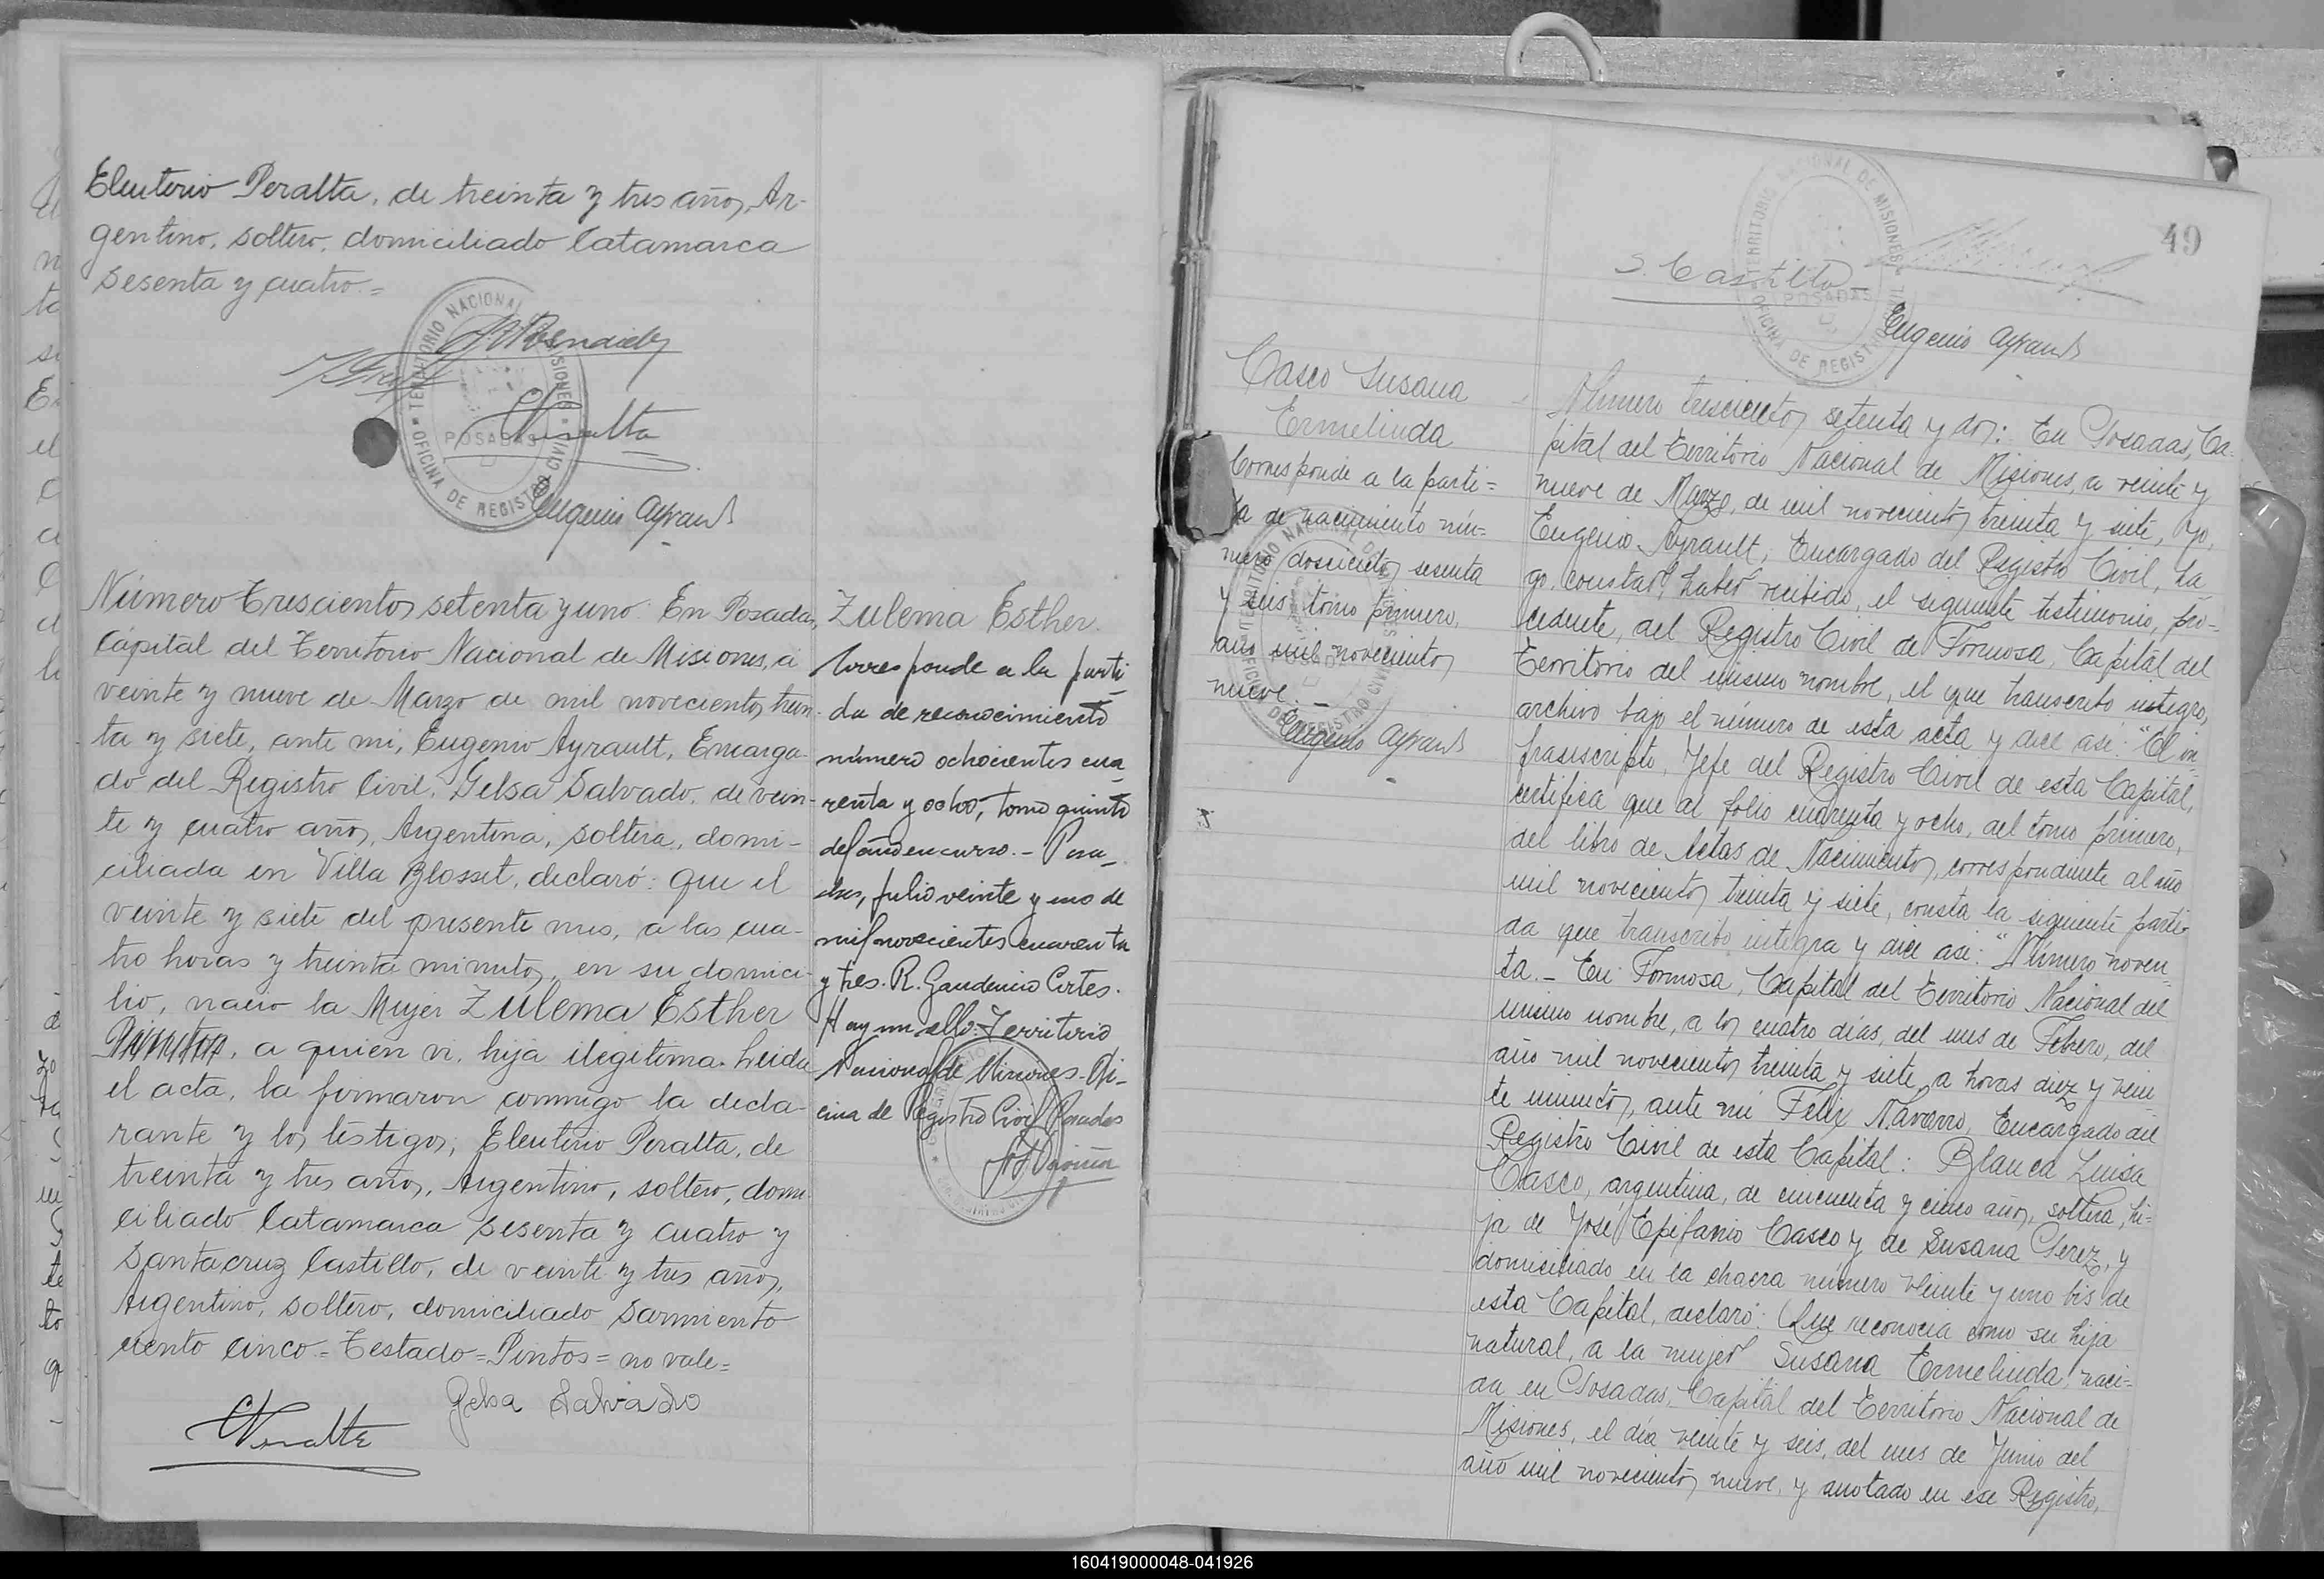 Eleuterio Peralta, de treinta y tres años, Ar-
gentino, soltero, domiciliado Catamarca
sesenta y cuatro.=
TERRITORIO NACIONAL MISIONES
POSADAS
OFICINA DE REGISTRO CIVIL
Peralta
Eugenio Ayrault
Número Trescientos setenta y uno. En Posadas,
Capital del Territorio Nacional de Misiones, a
veinte y nueve de Marzo de mil novecientos trein-
ta y siete, ante mi, Eugenio Ayrault, Encarga-
do del Registro Civil, Gelsa Salvado, de vein-
te y cuatro años, Argentina, soltera, domi-
ciliada en Villa Blosset, declaró: que el
veinte y siete del presente mes, a las cua-
tro horas y treinta minutos, en su domici-
lio, nació la Mujer Zulema Esther
, a quien vi, hija ilegitima. Leida
el acta, la firmaron conmigo la decla-
rante y los testigos; Eleuterio Peralta, de
treinta y tres años, Argentino, soltero, domi
ciliado Catamarca sesenta y cuatro y
Santacruz Castillo, de veinte y tres años,
Argentino, soltero, domiciliado Sarmiento
ciento cinco=Testado=Pintos= no vale=
Gelsa Salvado
Peralta
Zulema Esther.
Corresponde a la parti
da de reconocimiento
número ochocientos cua
renta y ocho, tomo quinto
del año en curso.- Posa-
das, julio veinte y uno de
mil novecientos cuarenta
y tres. R. Gaudencio Cortes.
Hay un sello: Territorio
Nacional de Misiones-Ofi-
cina de Registro Civil Posadas
49
TERRITORIO NACIONAL DE MISIONES
POSADAS
OFICINA DE REGISTRO CIVIL
S. Castillo
Eugenio Ayrault
Casco Susana
Ermelinda
Corresponde a la parti=
da de nacimiento nú-
mero doscientos sesenta
y seis tomo primero,
año mil novecientos
nueve.-
Eugenio Ayrault
Número trescientos setenta y dos: En Posadas, Ca-
pital del Territorio Nacional de Misiones, a veinte y
nueve de Marzo, de mil novecientos treinta y siete, Yo,
Eugenio Ayrault, Encargado del Registro Civil, ha
go constar, haber recibido, el siguiente testimonio, pro-
cedente, del Registro Civil de Formosa, Capital del
Territorio del mismo nombre, el que transcribo integro,
archivo bajo el número de esta acta y dice asi: "El in
frascripto, Jefe del Registro Civil de esta Capital,
certifica que al folio cuarenta y ocho, del tomo primero,
del libro de Actas de Nacimientos, correspondiente al año
mil novecientos treinta y siete, consta la siguiente parti-
da que transcribo integra y dice asi: "Número noven
ta.- En Formosa, Capital del Territorio Nacional del
mismo nombre, a los cuatro días, del mes de Febrero, del
año mil novecientos treinta y siete a horas diez y vein
te minutos, ante mi Felix Navarro, Encargado del
Registro Civil de esta Capital: Blanca Luisa
Casco, argentina, de cincuenta y cinco años, soltera, hi-
ja de José Epifanio Casco y de Susana Perez, y
domiciliado en la chacra número veinte y uno bis de
esta Capital, declaró: Que reconocia como su hija
natural, a la mujer Susana Ermelinda, naci=
da en Posadas, Capital del Territorio Nacional de
Misiones, el día veinte y seis, del mes de Junio del
año mil novecientos nueve, y anotado en ese Registro,
160419000048-041926